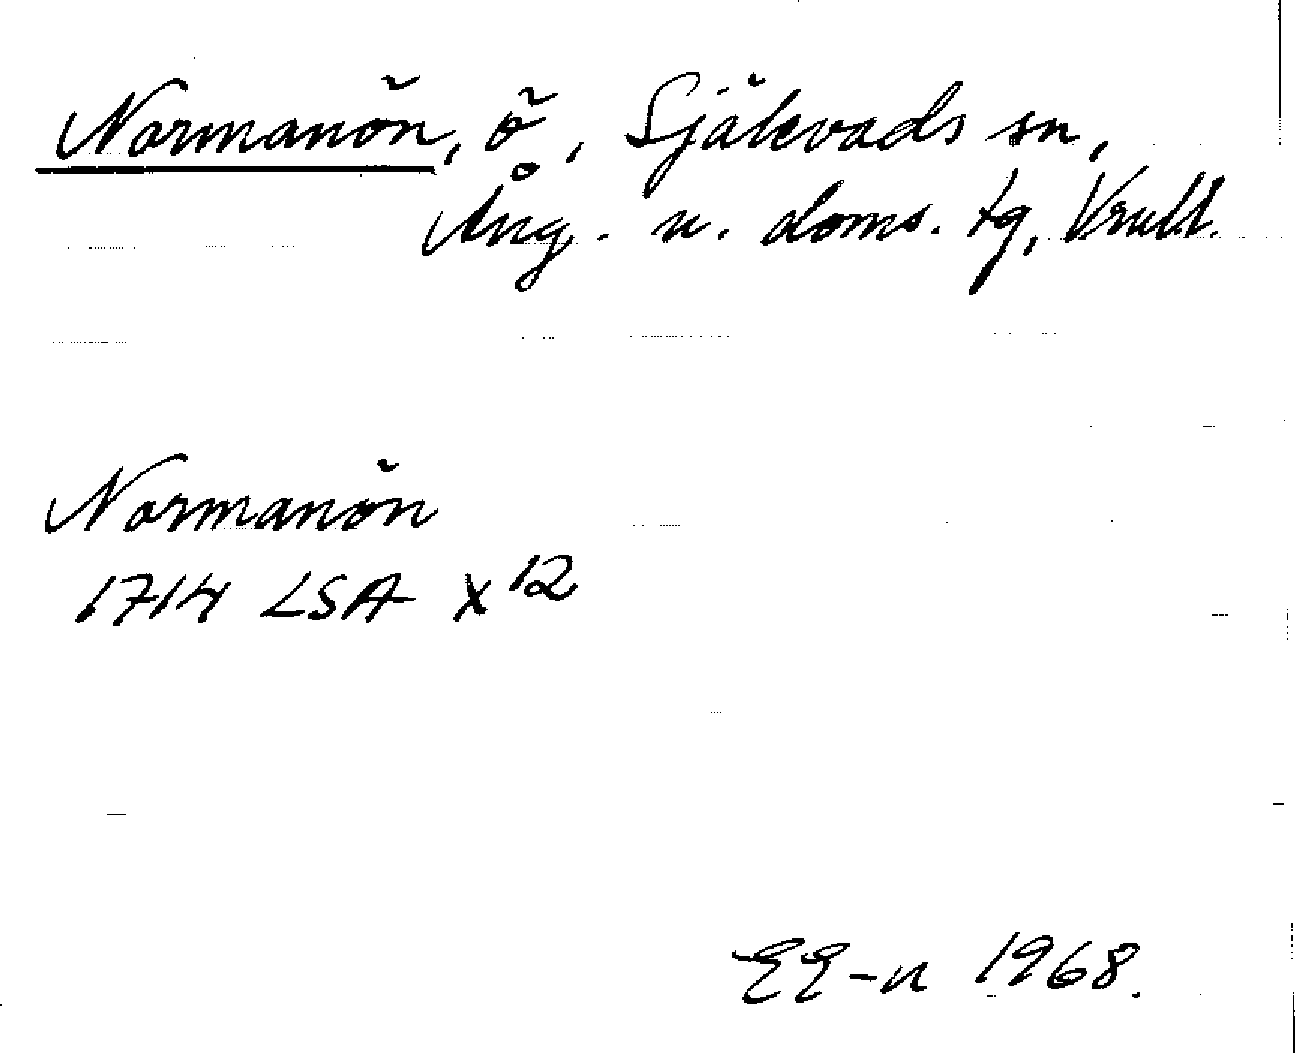 Normanön, ö, Själevads sn,
Ång. n. doms. tg, Vnultl.
Normanön
1714 LSA X 12
EE-n 1968.